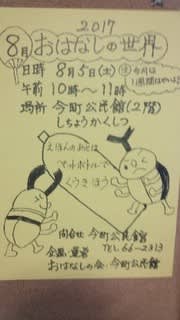 2017
8月 おはなしの世界
日時 8月5日(土) 注 今月は1週間はやいよ!
午前 10時〜11時
場所 今町公民館(2階)
しちょうかくしつ
えほんのあとは
ペットボトルで
くうきほう
問合せ 今町公民館
TEL 66-2313
企画・運営
おはなしの会・今町公民館